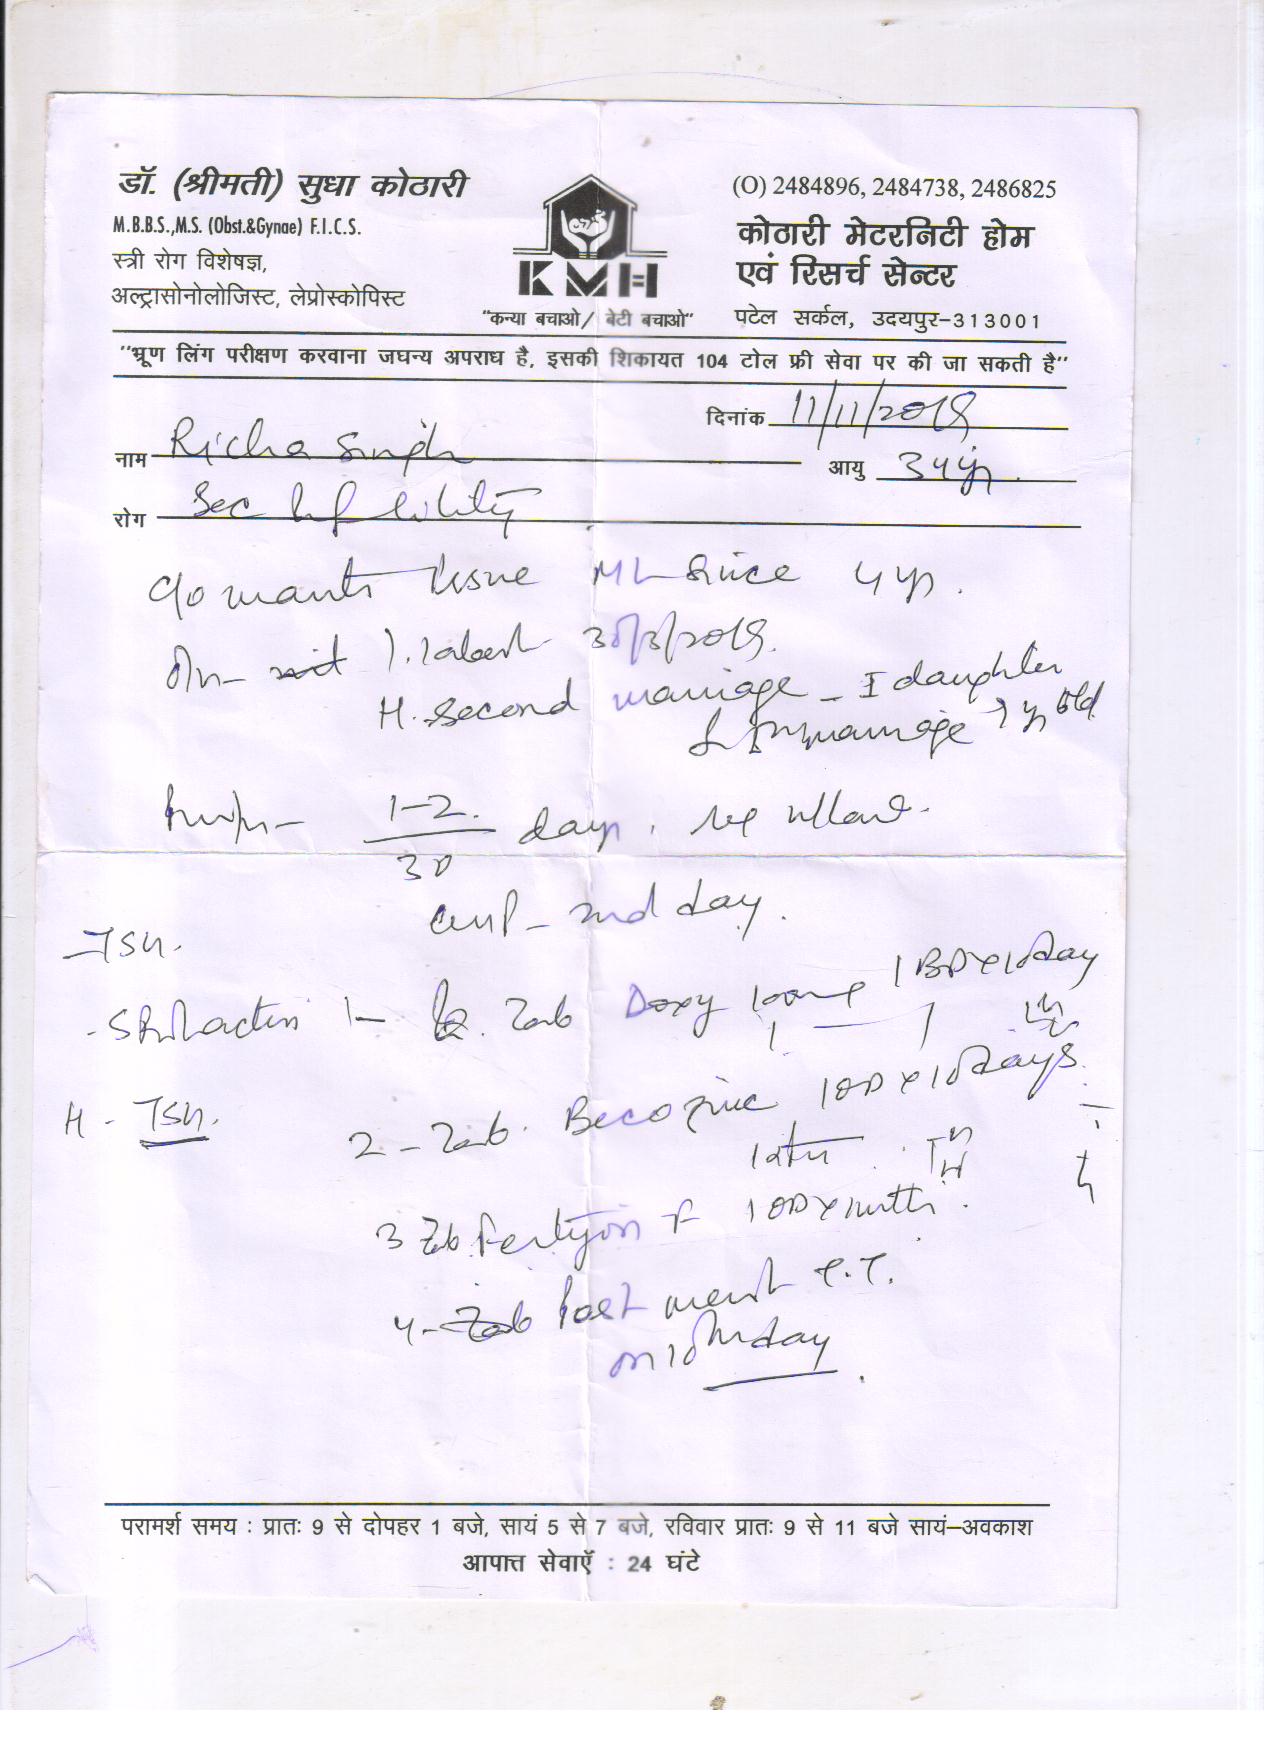 डॉ. (श्रीमती) सुधा कोठारी
M.B.B.S.,M.S. (Obst.&Gynae) F.I.C.S.
स्त्री रोग विशेषज्ञ,
अल्ट्रासोनोलोजिस्ट, लेप्रोस्कोपिस्ट
KMH
"कन्या बचाओ/ बेटी बचाओ"
(O) 2484896, 2484738, 2486825
कोठारी मेटरनिटी होम
एवं रिसर्च सेन्टर
पटेल सर्कल, उदयपुर-313001
"भ्रूण लिंग परीक्षण करवाना जघन्य अपराध है, इसकी शिकायत 104 टोल फ्री सेवा पर की जा सकती है"
दिनांक 11/11/2019
नाम Richa Singh
आयु 34 yr.
रोग Sec Infertility
c/o wants issue ML since 4 yr.
1. 
H. second marriage - I daughter
marriage 7 yr old
1-2
30 days.
LMP - 2nd day.
- TSH.
- S Prolactin 1- Tab Doxy 100mg 1 BD x 10 day
H - TSH.
2 - Tab. Becozinc 1 OD x 10 days.
3 Tab Fertyin F 1 OD x 1 mth.
4 - post menst
on 10th day
परामर्श समय : प्रातः 9 से दोपहर 1 बजे, सायं 5 से 7 बजे, रविवार प्रातः 9 से 11 बजे सायं-अवकाश
आपात्त सेवाएँ : 24 घंटे